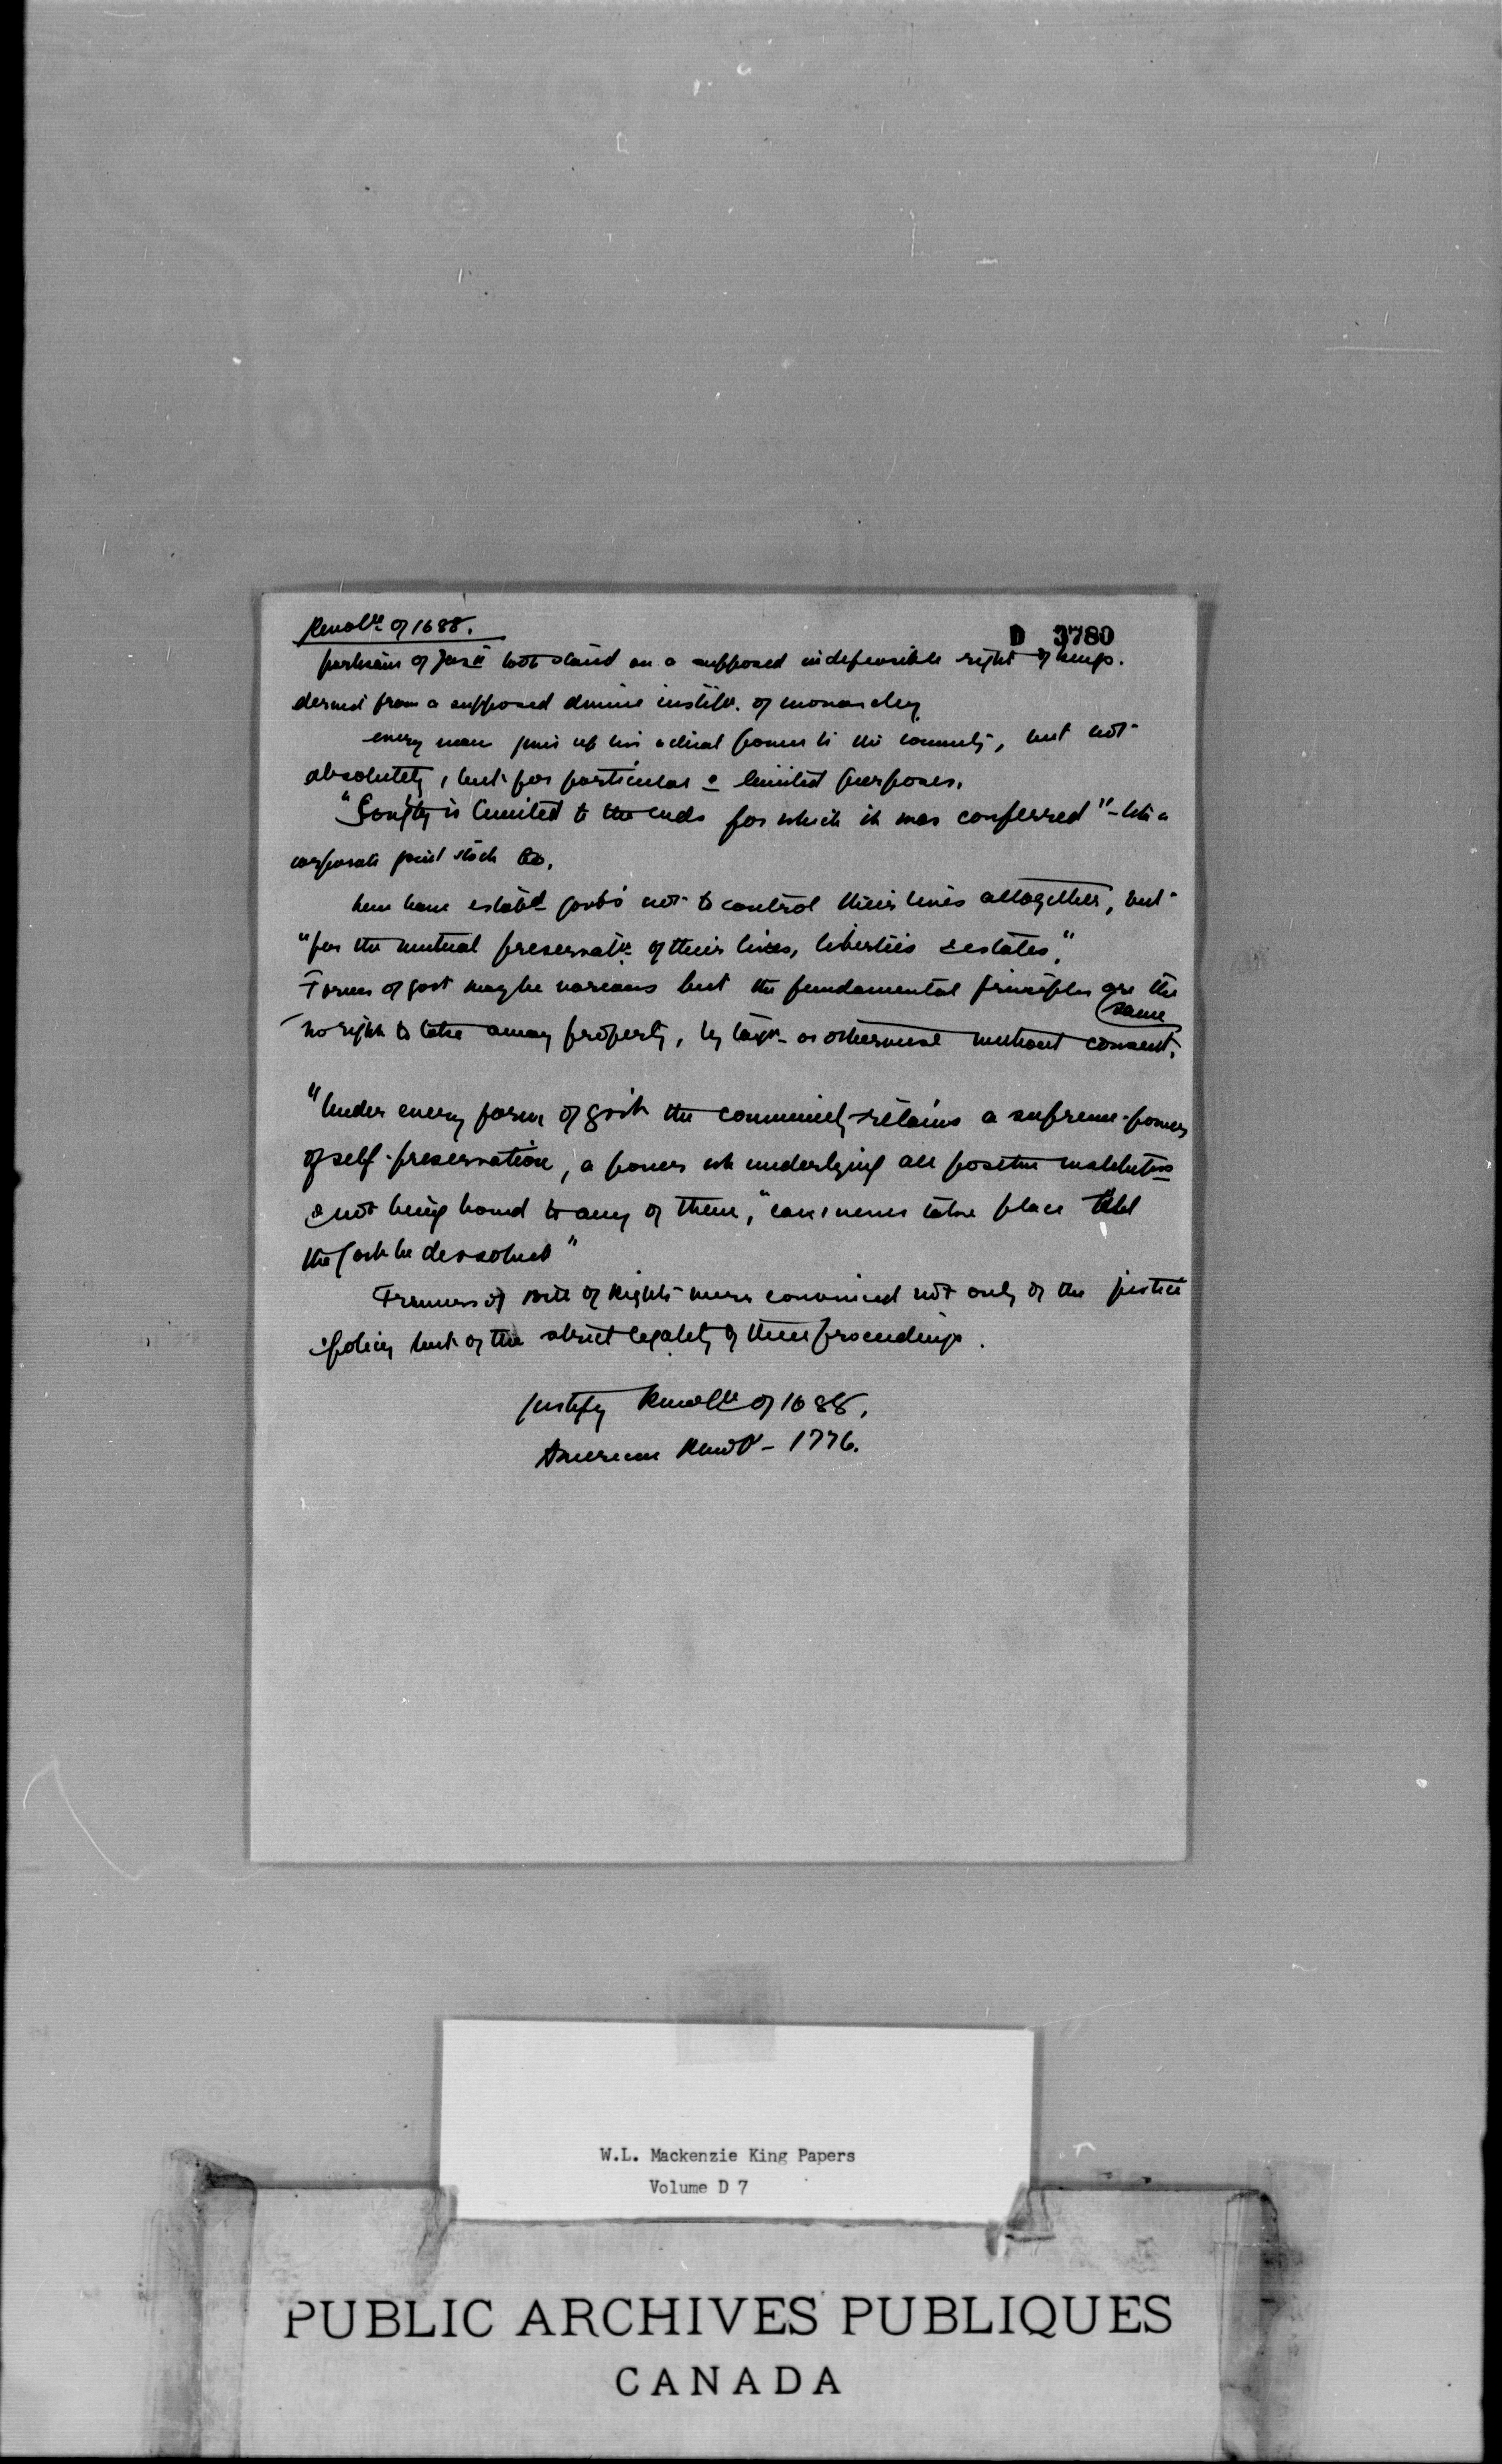 Revolⁿ of 1688.
D 3780
partisans of Jas II took stand on a supposed indefeasible right of kings.
derived from a supposed divine institⁿ. of monarchy
every man gives up his actual power to the community, but not
absolutely, but for particular & limited purposes.
"Sovgty is limited to the ends for which it was conferred" - like a
corporate joint stock Co.
have estabd govts not to control their lives altogether, but
"for the mutual preservatn of their lives, liberties & estates."
Forms of govt may be various but the fundamental principles are the
same
no right to take away property, by taxn - or otherwise without consent.
"Under every form of govt the community retains a supreme power
of self-preservation, a power wh underlying all positive institutns
& not being bound to any of them, "can never take place till
the govt be dissolved"
Framers of Bill of Rights were convinced not only of the justice
& policy but of the strict legality of their proceedings.
justify Revoltn of 1688.
American Revoltn - 1776.
W.L. Mackenzie King Papers
Volume D 7
PUBLIC ARCHIVES PUBLIQUES
CANADA